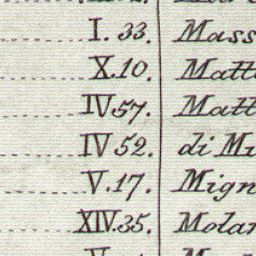 I. 33. Mass
X. 10. Matt
IV 57. Matt
IV 52. di Mi
V. 17. Mign
XIV. 35. Molar